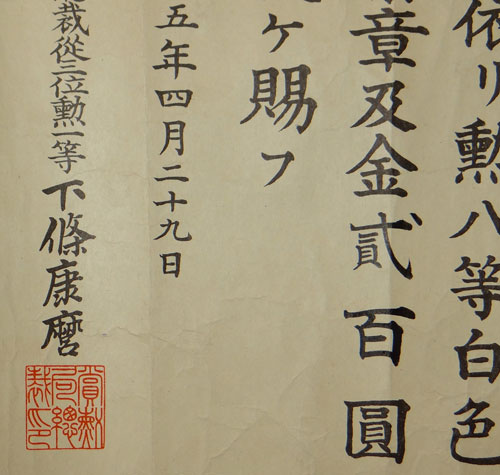 依リ勲八等白色
章及金貳百圓
ケ賜フ
五年四月二十九日
裁從三位勲一等下條康麿
賞勲
局總
裁印